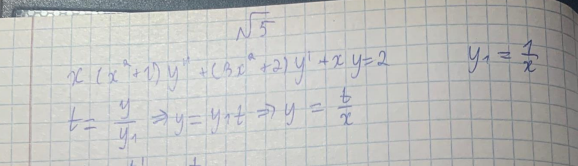 √5
x(x²+1)y'' + (3x²+2)y' + xy = 2 y₁ = 1/x
t = y/y₁ ⇒ y = y₁t ⇒ y = t/x